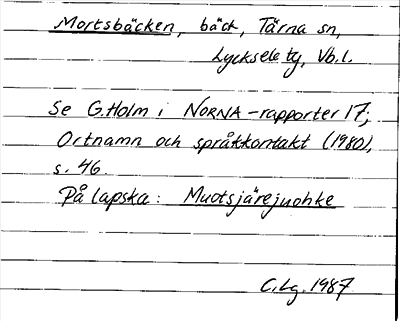 Mortsbäcken, bäck, Tärna sn,
Lycksele tg, Vb.l.
Se G. Holm i NORNA-rapporter 17;
Ortnamn och språkkontakt (1980),
s. 46.
På lapska: Muotsjärejuohke
C. Lg. 1987